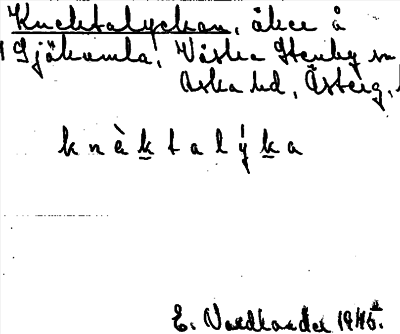 Knektalyckan, åker å
Gjökumla, Västra Stenby sn
Aska hd, Österg,
k n è k t a l ý k a
E. Nordlander 1945.